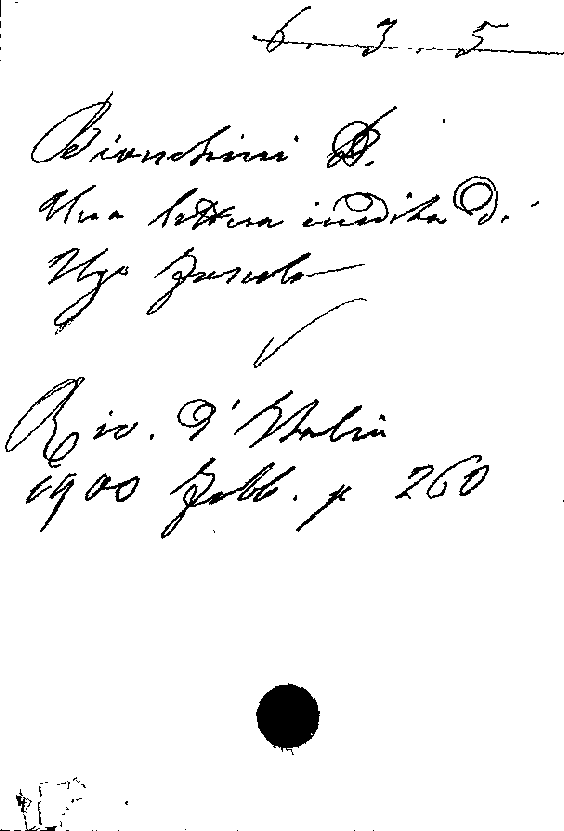 6. 3. 5
Bianchini D.
Una lettera inedita di
Ugo Foscolo
Riv. d'Italia
1900 Febb. p 260